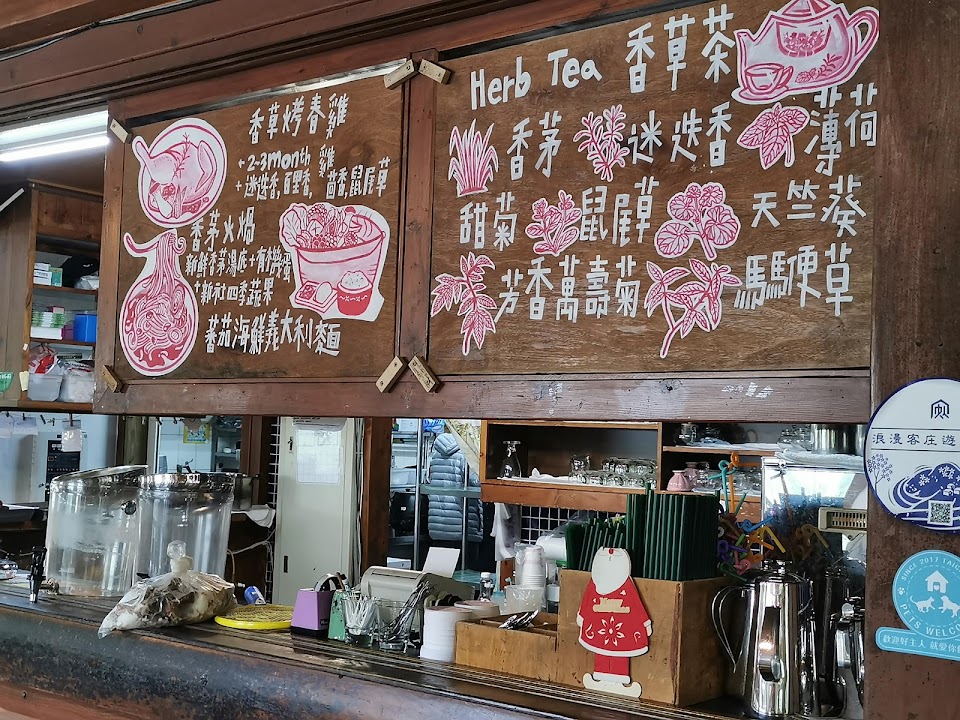 香草烤春雞
+2-3month 雞
+迷迭香, 百里香, 茴香, 鼠尾草
香茅火鍋
新鮮香茅湯底+有機蛋
+新社四季蔬果
蕃茄海鮮義大利麵
Herb Tea 香草茶
香茅 迷迭香 薄荷
甜菊 鼠尾草 天竺葵
芳香萬壽菊 馬鞭草
浪漫客庄遊
SINCE 2017
PETS WELCOME
歡迎好主人